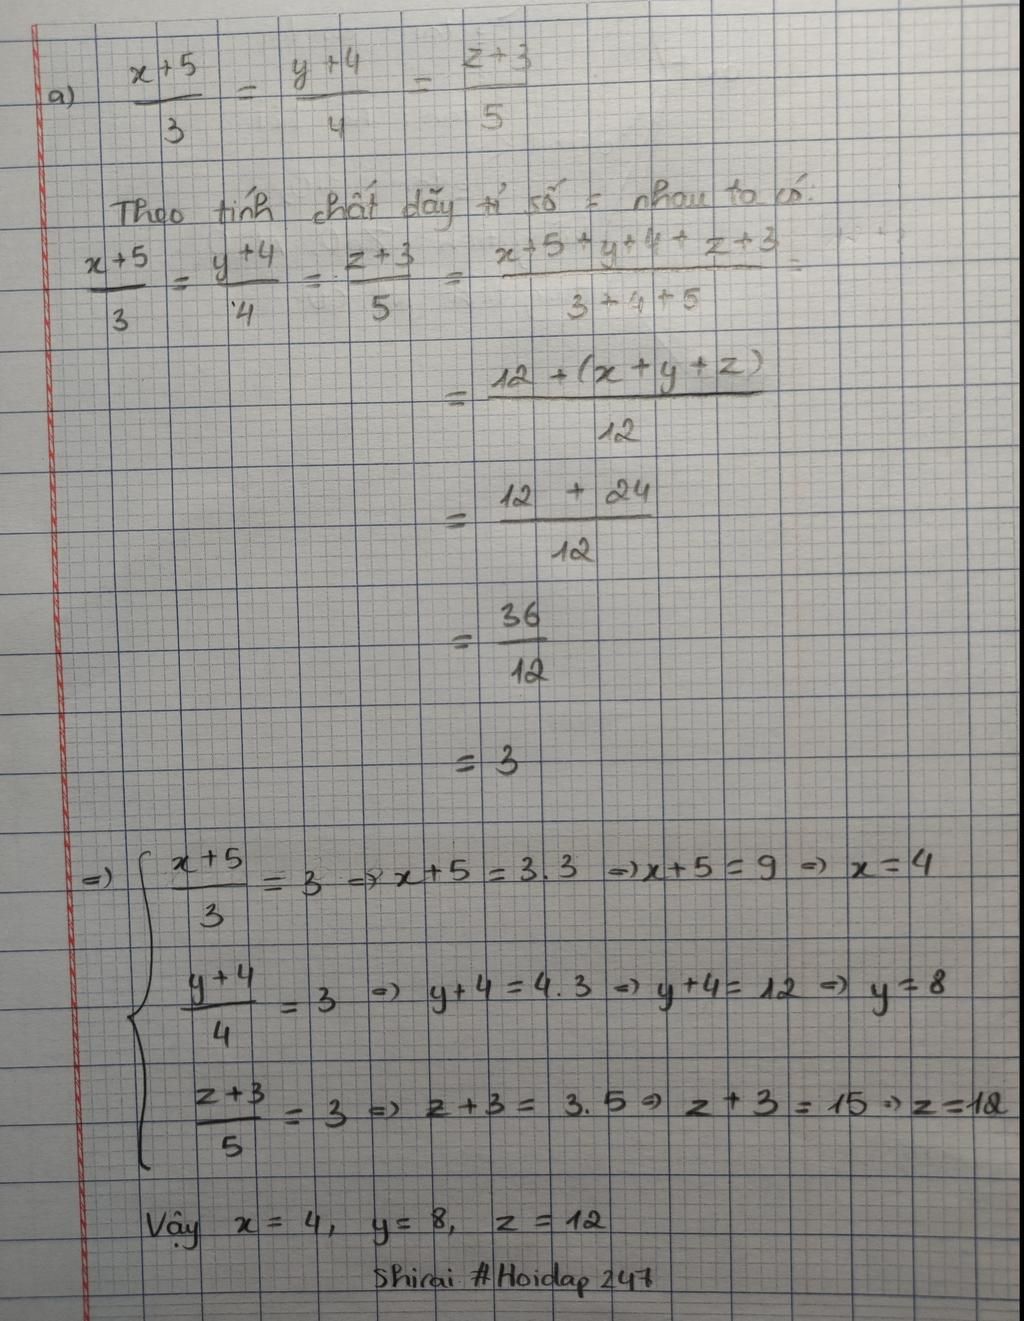 a) x+5/3 = y+4/4 = z+3/5
Theo tính chất dãy tỉ số = nhau ta có:
x+5/3 = y+4/4 = z+3/5 = x+5+y+4+z+3/3+4+5 =
= 12+(x+y+z)/12
= 12 + 24/12
= 36/12
= 3
=> { x+5/3 = 3 => x+5 = 3.3 => x+5 = 9 => x = 4
y+4/4 = 3 => y+4 = 4.3 => y+4 = 12 => y = 8
z+3/5 = 3 => z+3 = 3.5 => z+3 = 15 => z = 12
Vậy x = 4, y = 8, z = 12
Shirai #Hoidap247